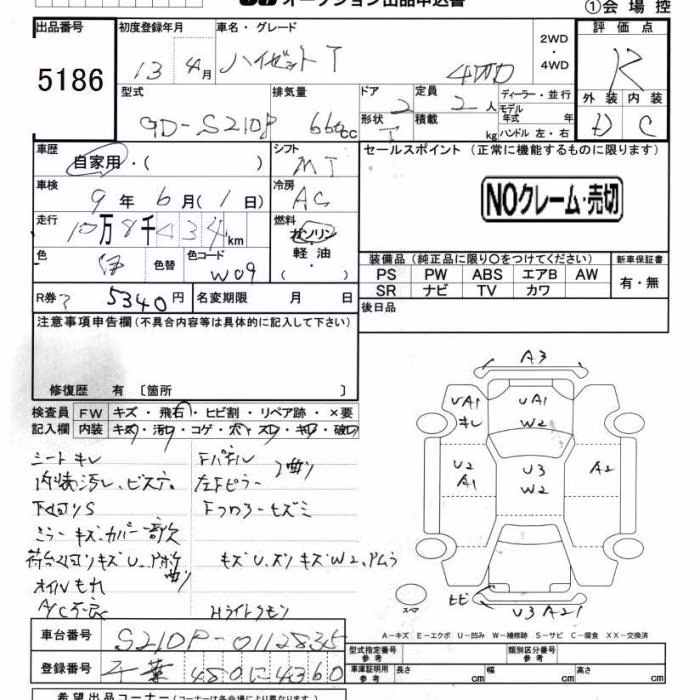 オークション出品申込書
①会場控
出品番号
5186
初度登録年月
13 4月
車名・グレード
ハイゼット T
4WD
2WD
・
4WD
評価点
R
外装 内装
D C
型式
GD-S210P
排気量
660cc
ドア
2
定員
2人
形状
T
積載
kg
ディーラー・並行
モデル
年式 年
ハンドル 左・右
車歴
自家用・( )
シフト
MT
セールスポイント (正常に機能するものに限ります)
NOクレーム・売切
車検
9年6月(1日)
冷房
AC
走行
10万8千434km
燃料
ガソリン
・
軽油
・
( )
色
色替
色コード
W09
装備品 (純正品に限り○をつけてください)
新車保証書
PS PW ABS エアB AW
SR ナビ TV カワ
有・無
R券
5340円
名変期限 月 日
後日品
注意事項申告欄(不具合内容等は具体的に記入して下さい)
修復歴 有 〔箇所 〕
検査員
記入欄
FW キズ・飛石・ヒビ割・リペア跡・×要
内装 キズ・汚れ・コゲ・穴・スレ・キレ・破レ
シートキレ
内装汚れ、ビス穴
下回りS
ミラーキズ カバー欠
オイルもれ
A/C不良
Fパネル
左Fピラー
曲り
Fフロアーキズミ
キズU、ズリキズW2、
A3
UA1
キレ
UA1
W2
U2
A1
U3
W2
A2
スペア
ヒビ
U3 A21
A-キズ E-エクボ U-凹み W-補修跡 S-サビ C-腐食 XX-交換済
車台番号
S210P-0112835
登録番号
千葉 480 に 4360
型式指定番号
参考
類別区分番号
参考
車庫証明用
参考
長さ cm 幅 cm 高さ cm
希望出品コーナー